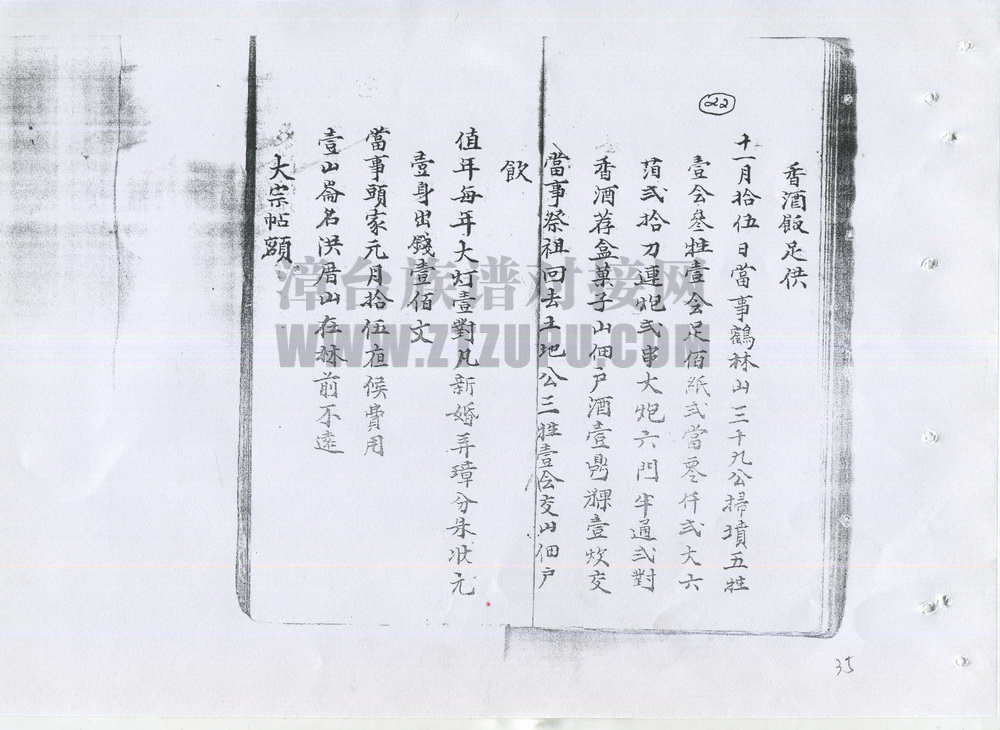 22
香酒飯足供
十一月拾伍日當事鶴林山三十九公掃墳五牲
壹會叁牲壹會足佰紙弍當零仟弍大六
萡弍拾刀連炮弍串大炮六門牛通弍對
香酒荐盒菓子山佃戶酒壹鼎粿壹炊交
當事祭祖回去土地公三牲壹會交山佃戶
飲
值年每年大灯壹對凡新婚弄璋分朱状元
壹身出錢壹佰文
當事頭家元月拾伍夜候費用
壹山崙名洪厝山在林前不遠
大宗帖額
漳台族谱对接网
WWW.ZTZUPU.COM
35